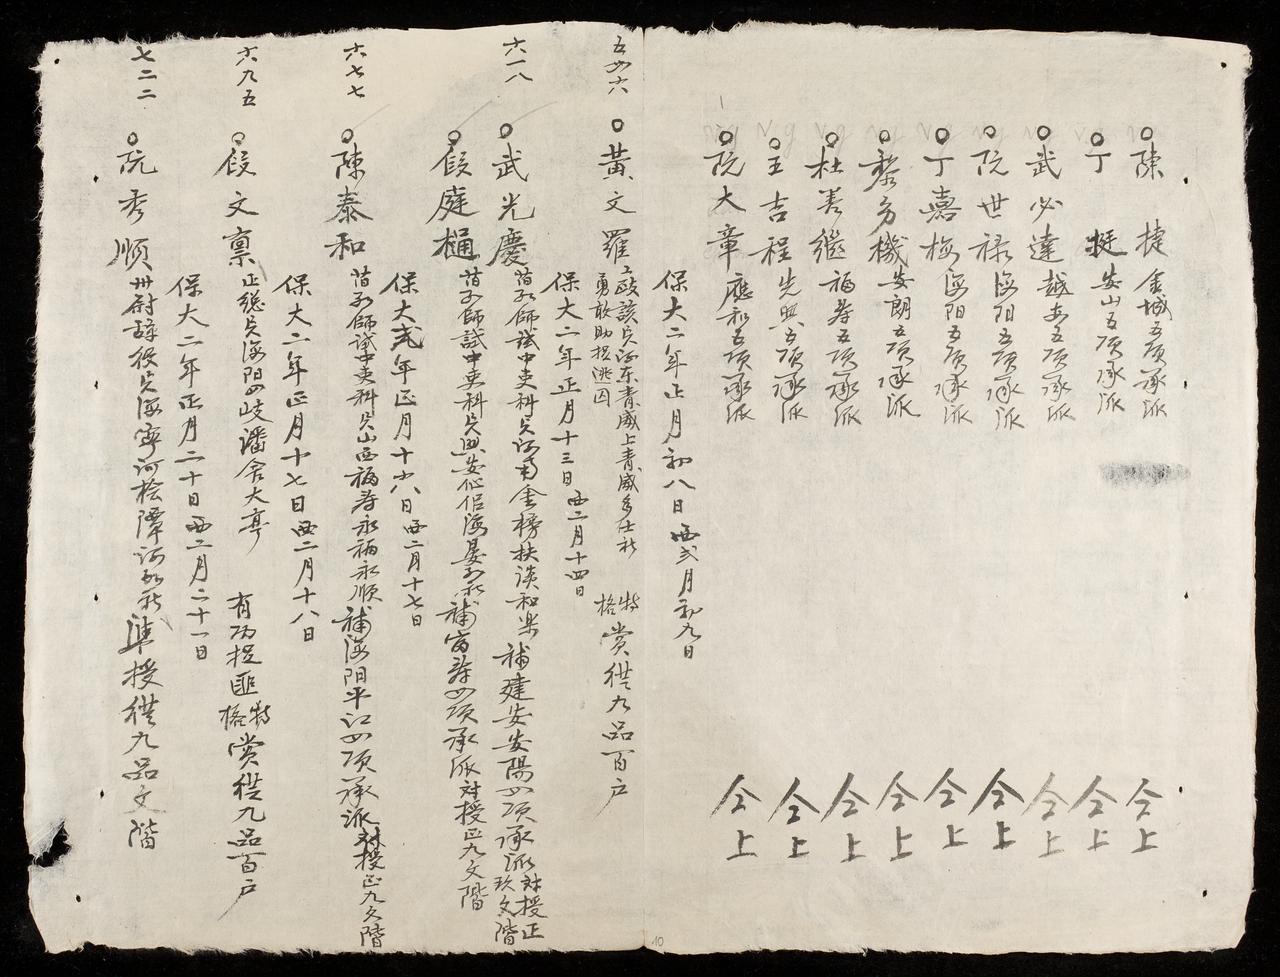 陳 捷 金城五項承派 仝上
丁 挺 安山五項承派 仝上
武必達 越安五項承派 仝上
阮世祿 海阳五項承派 仝上
丁嘉梅 海阳五項承派 仝上
黎方機 安朗五項承派 仝上
杜善繼 福寿五項承派 仝上
王吉程 先興五項承派 仝上
阮大章 應和五項承派 仝上
保大二年正月初八日 西弍月初九日
五四六
黃文羅 該員河東青威上青威 社
勇敢助捉逃囚 特格 賞從九品百户
保大二年正月十三日 西二月十四日
六一八
武光慶 試中吏科員河南金榜扶 和樂 補建安安陽四項承派 对授正玖文階
段庭樋 試中吏科員 補富寿四項承派 对授正九文階
保大弍年正月十六日 西二月十七日
六七七
陳泰和 試中吏科員山西福寿永福永順 補海阳平江四項承派 对授正九文階
保大二年正月十七日 西二月十八日
六九五
段文禀 正總員海阳四岐潘舍大亭 有功捉匪 特格 賞從九品百户
保大二年正月二十日 西二月二十一日
七二二
阮秀順 員海寧河桧潭河 準授從九品文階
10